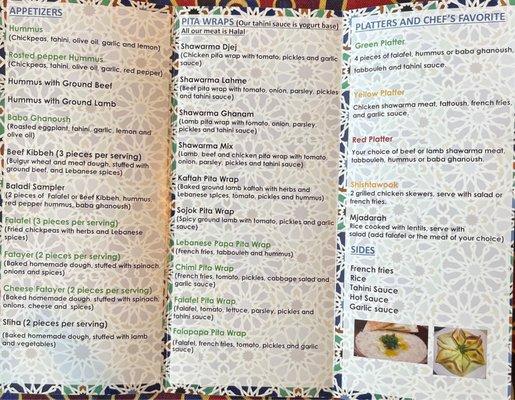 APPETIZERS
Hummus
(Chickpeas, tahini, olive oil, garlic, and lemon)
Rosted pepper Hummus
(Chickpeas, tahini, olive oil, garlic, red pepper)
Hummus with Ground Beef
Hummus with Ground Lamb
Baba Ghanoush
(Roasted eggplant, tahini, garlic, lemon and
olive oil)
Beef Kibbeh (3 pieces per serving)
(Bulgur wheat and meat dough, stuffed with
ground beef, and Lebanese spices)
Baladi Sampler
(2 pieces of Falafel or Beef Kibbeh, hummus,
red pepper hummus, baba ghanoush)
Falafel (3 pieces per serving)
(Fried chickpeas with herbs and Lebanese
spices)
Fatayer (2 pieces per serving)
(Baked homemade dough, stuffed with spinach,
onions and spices)
Cheese Fatayer (2 pieces per serving)
(Baked homemade dough, stuffed with spinach,
onions, cheese and spices)
Sfiha (2 pieces per serving)
(Baked homemade dough, stuffed with lamb
and vegetables)
PITA WRAPS (Our tahini sauce is yogurt base)
All our meat is Halal
Shawarma Djej
(Chicken pita wrap with tomato, pickles and garlic
sauce)
Shawarma Lahme
(Beef pita wrap with tomato, onion, parsley, pickles
and tahini sauce)
Shawarma Ghanam
(Lamb pita wrap with tomato, onion, parsley,
pickles and tahini sauce)
Shawarma Mix
(Lamb, beef and chicken pita wrap with tomato,
onion, parsley, pickles and tahini sauce)
Kaftah Pita Wrap
(Baked ground lamb kaftah with herbs and
Lebanese spices, tomato, pickles and hummus)
Sojok Pita Wrap
(Spicy ground lamb with tomato, pickles and garlic
sauce)
Lebanese Papa Pita Wrap
(French fries, tabbouleh and hummus)
Chimi Pita Wrap
(French fries, tomato, pickles, cabbage salad and
garlic sauce)
Falafel Pita Wrap
(Falafel, tomato, lettuce, parsley, pickles and
tahini sauce)
Falapapa Pita Wrap
(Falafel, french fries, tomato, pickles and garlic
sauce)
PLATTERS AND CHEF'S FAVORITE
Green Platter
4 pieces of falafel, hummus or baba ghanoush,
tabbouleh and tahini sauce.
Yellow Platter
Chicken shawarma meat, fattoush, french fries,
and garlic sauce.
Red Platter
Your choice of beef or lamb shawarma meat,
tabbouleh, hummus or baba ghanoush.
Shishtawook
2 grilled chicken skewers, serve with salad or
french fries.
Mjadarah
Rice cooked with lentils, serve with
salad (add falafel or the meat of your choice)
SIDES
French fries
Rice
Tahini Sauce
Hot Sauce
Garlic sauce